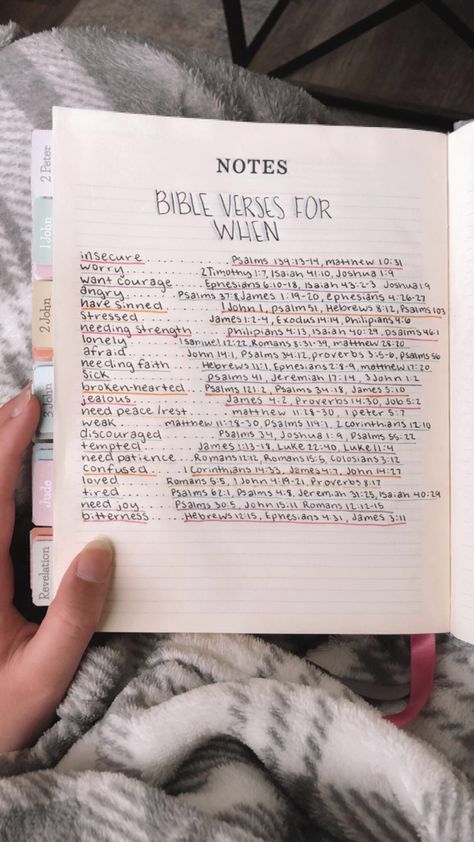 NOTES
BIBLE VERSES FOR
WHEN
insecure .......... Psalms 139:13-14, matthew 10:31
worry .......... 2 Timothy 1:7, Isaiah 41:10, Joshua 1:9
want courage ....... Ephesians 6:10-18, Isaiah 43:2-3 Joshua 1:9
angry ....... Psalms 37:8 James 1:19-20, ephesians 4:26-27
have sinned .......... 1 John 1, psalm 51, Hebrews 8:12, Psalms 103
stressed ....... James 1:2-4, Exodus 14:14, Philipians 4:6
needing strength ....... philipians 4:13, Isaiah 40:29, psalms 46:1
lonely .......... 1 Samuel 12:22, Romans 8:31-39, matthew 28:20
afraid .......... John 14:1, Psalms 34:12, proverbs 3:5-6, Psalms 56
needing faith ....... Hebrews 11:1, Ephesians 2:8-9, matthew 17:20
sick .......... psalms 41, Jeremiah 17:14, 3 John 1:2
broken-hearted .... Psalms 121:2 Psalms 34:18, James 5:10
jealous .......... James 4:2, Proverbs 14:30, Job 5:2
need peace/rest ....... matthew 11:28-30, 1 peter 5:7
weak ....... matthew 11:28-30, Psalms 114:1, 2 Corinthians 12:10
discouraged ....... Psalms 34, Joshua 1:9, Psalms 55:22
tempted .......... James 1:13-18, Luke 22:40, Luke 11:4
need patience .... Romans 12:12, Romans 15:5, Colosians 3:12
confused .... 1 Corinthians 14:33, James 4:1, John 14:27
loved .......... Romans 5:5, 1 John 4:19-21, Proverbs 8:17
tired .......... Psalms 62:1, Psalms 4:8, Jeremiah 31:25, Isaiah 40:29
need joy ..... Psalms 30:5, John 15:11 Romans 12:12-15
bitterness ..... Hebrews 12:15, Ephesians 4:31, James 3:11
2 Peter
1 John
2 John
3 John
Jude
Revelation